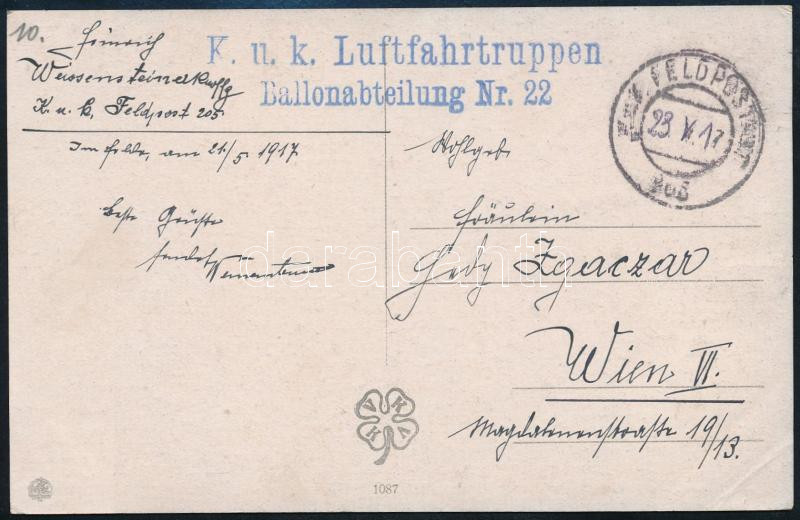 10.
Heinrich
Weissensteiner
K. u. k. Feldpost 205
K. u. k. Luftfahrtruppen
Ballonabteilung Nr. 22
K.u.K. FELDPOSTAMT
23 V. 17
205
Im Felde, am 21/5 1917
Beste Grüße
sendet
Wohlgeb
Fräulein
Hedy Zgaczar
Wien VI.
Magdalenenstraße 19/13.
darabanth
1087